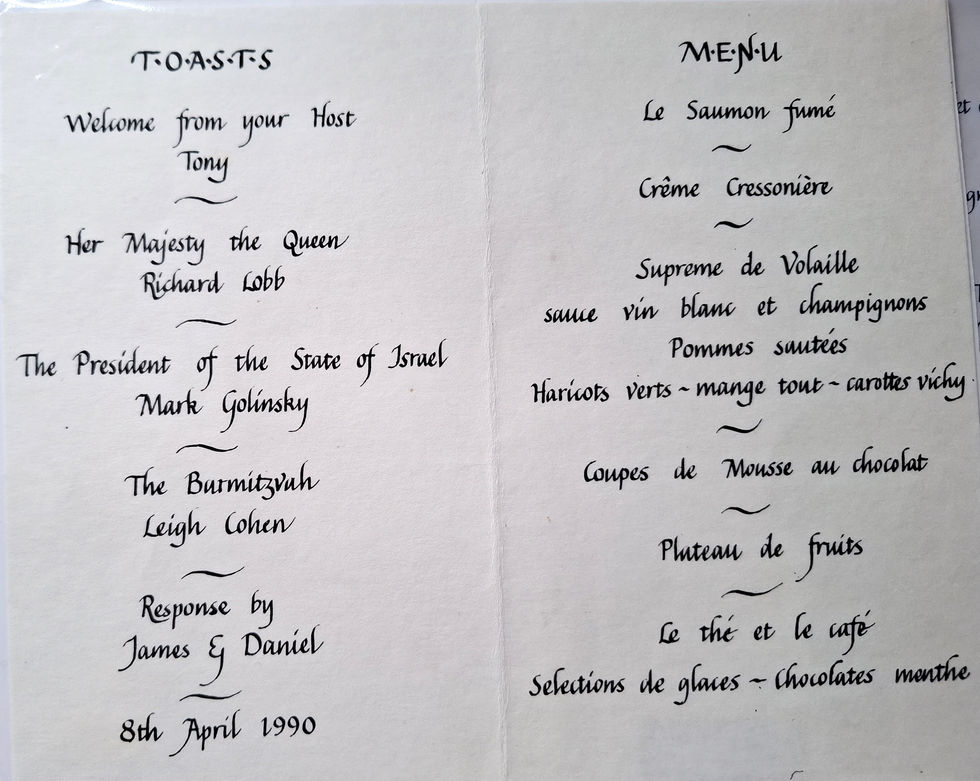 T·O·A·S·T·S
Welcome from your Host
Tony
Her Majesty the Queen
Richard Lobb
The President of the State of Israel
Mark Golinsky
The Barmitzvah
Leigh Cohen
Response by
James & Daniel
8th April 1990
M·E·N·U
Le Saumon fumé
Crême Cressonière
Supreme de Volaille
sauce vin blanc et champignons
Pommes sautées
Haricots verts ~ mange tout ~ carottes vichy
Coupes de Mousse au chocolat
Plateau de fruits
Le thé et le café
Selections de glaces ~ Chocolates menthe